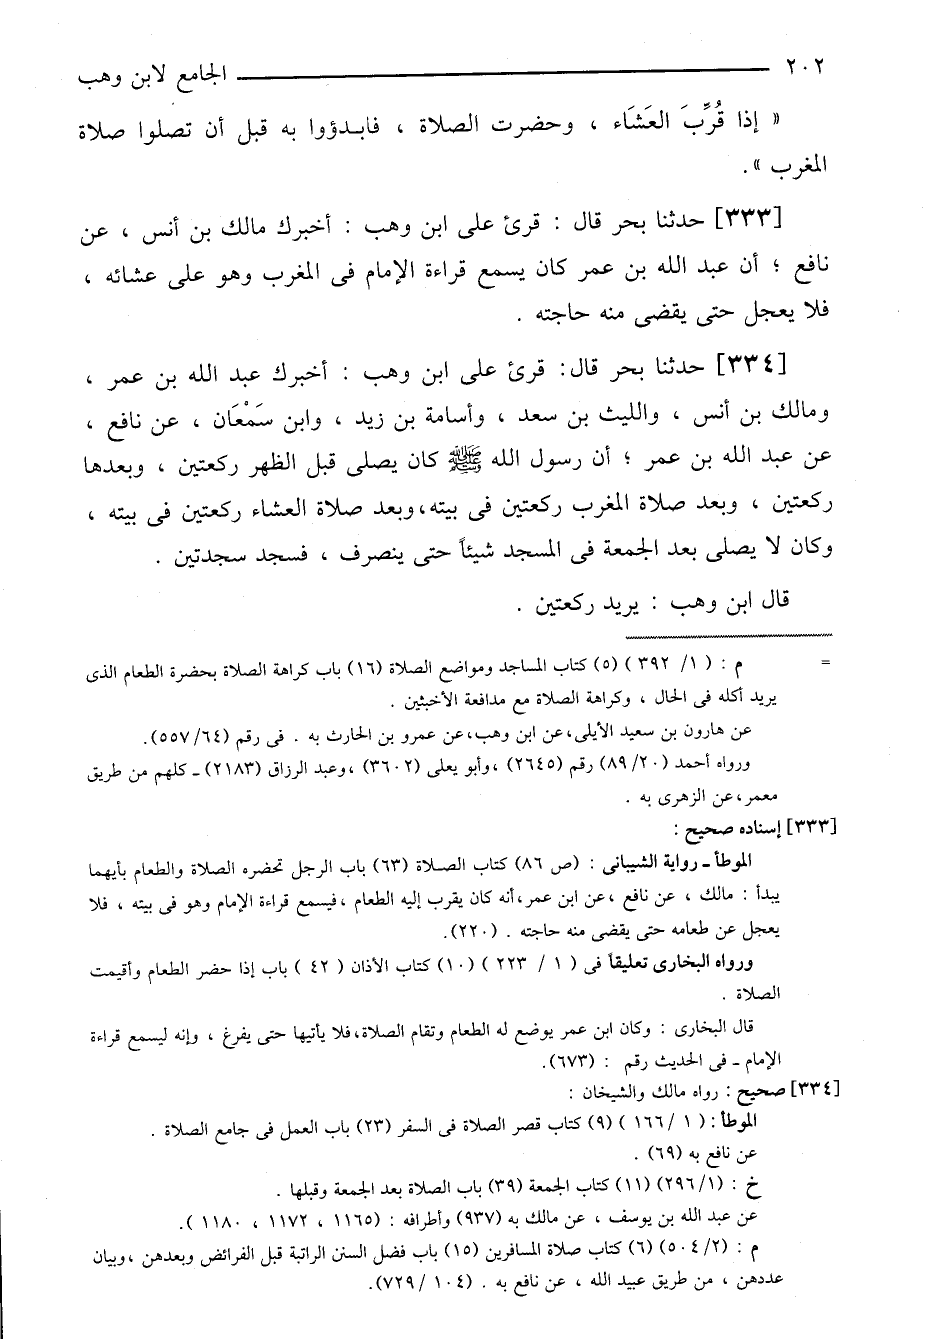 ٢٠٢ الجامع لابن وهب
« إذا قُرِّبَ العَشَاء ، وحضرت الصلاة ، فابدؤوا به قبل أن تصلوا صلاة
المغرب ».
[٣٣٣] حدثنا بحر قال : قرئ على ابن وهب : أخبرك مالك بن أنس ، عن
نافع ؛ أن عبد الله بن عمر كان يسمع قراءة الإمام فى المغرب وهو على عشائه ،
فلا يعجل حتى يقضى منه حاجته .
[٣٣٤] حدثنا بحر قال: قرئ على ابن وهب : أخبرك عبد الله بن عمر ،
ومالك بن أنس ، والليث بن سعد ، وأسامة بن زيد ، وابن سَمْعَان ، عن نافع ،
عن عبد الله بن عمر ؛ أن رسول الله ﷺ كان يصلى قبل الظهر ركعتين ، وبعدها
ركعتين ، وبعد صلاة المغرب ركعتين فى بيته، وبعد صلاة العشاء ركعتين فى بيته ،
وكان لا يصلى بعد الجمعة فى المسجد شيئاً حتى ينصرف ، فسجد سجدتين .
قال ابن وهب : يريد ركعتين .
= م : ( ١/ ٣٩٢ ) (٥) كتاب المساجد ومواضع الصلاة (١٦) باب كراهة الصلاة بحضرة الطعام الذى
يريد أكله فى الحال ، وكراهة الصلاة مع مدافعة الأخبثين .
عن هارون بن سعيد الأيلى، عن ابن وهب، عن عمرو بن الحارث به . فى رقم (٥٥٧/٦٤).
ورواه أحمد (٨٩/٢٠) رقم (٢٦٤٥) ، وأبو يعلى (٣٦٠٢) ، وعبد الرزاق (٢١٨٣) ـ كلهم من طريق
معمر، عن الزهرى به .
[٣٣٣] إسناده صحيح :
الموطأ ـ رواية الشيبانى : (ص ٨٦) كتاب الصلاة (٦٣) باب الرجل تحضره الصلاة والطعام بأيهما
يبدأ : مالك ، عن نافع ، عن ابن عمر، أنه كان يقرب إليه الطعام ، فيسمع قراءة الإمام وهو فى بيته ، فلا
يعجل عن طعامه حتى يقضى منه حاجته . (٢٢٠).
ورواه البخارى تعليقاً فى ( ١ / ٢٢٣ ) (١٠) كتاب الأذان ( ٤٢ ) باب إذا حضر الطعام وأقيمت
الصلاة .
قال البخارى : وكان ابن عمر يوضع له الطعام وتقام الصلاة، فلا يأتيها حتى يفرغ ، وإنه ليسمع قراءة
الإمام ـ فى الحديث رقم : (٦٧٣).
[٣٣٤] صحيح : رواه مالك والشيخان :
الموطأ : ( ١ /١٦٦ ) (٩) كتاب قصر الصلاة فى السفر (٢٣) باب العمل فى جامع الصلاة .
عن نافع به (٦٩) .
خ : (٢٩٦/١) (١١) كتاب الجمعة (٣٩) باب الصلاة بعد الجمعة وقبلها .
عن عبد الله بن يوسف ، عن مالك به (٩٣٧) وأطرافه : (١١٦٥ ، ١١٧٢ ، ١١٨٠ ).
م : (٥٠٤/٢) (٦) كتاب صلاة المسافرين (١٥) باب فضل السنن الراتبة قبل الفرائض وبعدهن ، وبيان
عددهن ، من طريق عبيد الله ، عن نافع به . (١٠٤ /٧٢٩).